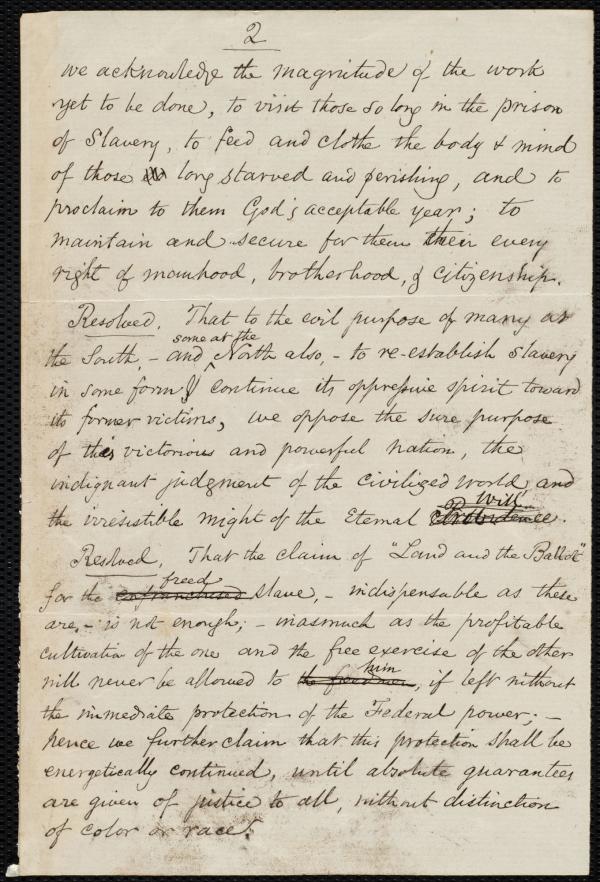 2
we acknowledge the magnitude of the work
yet to be done, to visit those so long in the prison
of Slavery, to feed and clothe the body & mind
of those long starved and perishing, and to
proclaim to them God's acceptable year; to
maintain and secure for them their every
right of manhood, brotherhood, & citizenship.
Resolved, That to the evil purpose of many at
some at the
the South, – and North also, – to re-establish slavery
in some form & continue its oppressive spirit toward
its former victims, we oppose the sure purpose
of this victorious and powerful nation, the
indignant judgment of the civilized world and
Will
the irresistible might of the Eternal Providence.
Resolved, That the claim of "Land and the Ballot"
freed
for the enfranchised slave, – indispensable as these
are, – is not enough; – inasmuch as the profitable
cultivation of the one and the free exercise of the other
him
will never be allowed to the freedmen, if left without
the immediate protection of the Federal power; –
hence we further claim that this protection shall be
energetically continued, until absolute guarantees
are given of justice to all, without distinction
of color or race.